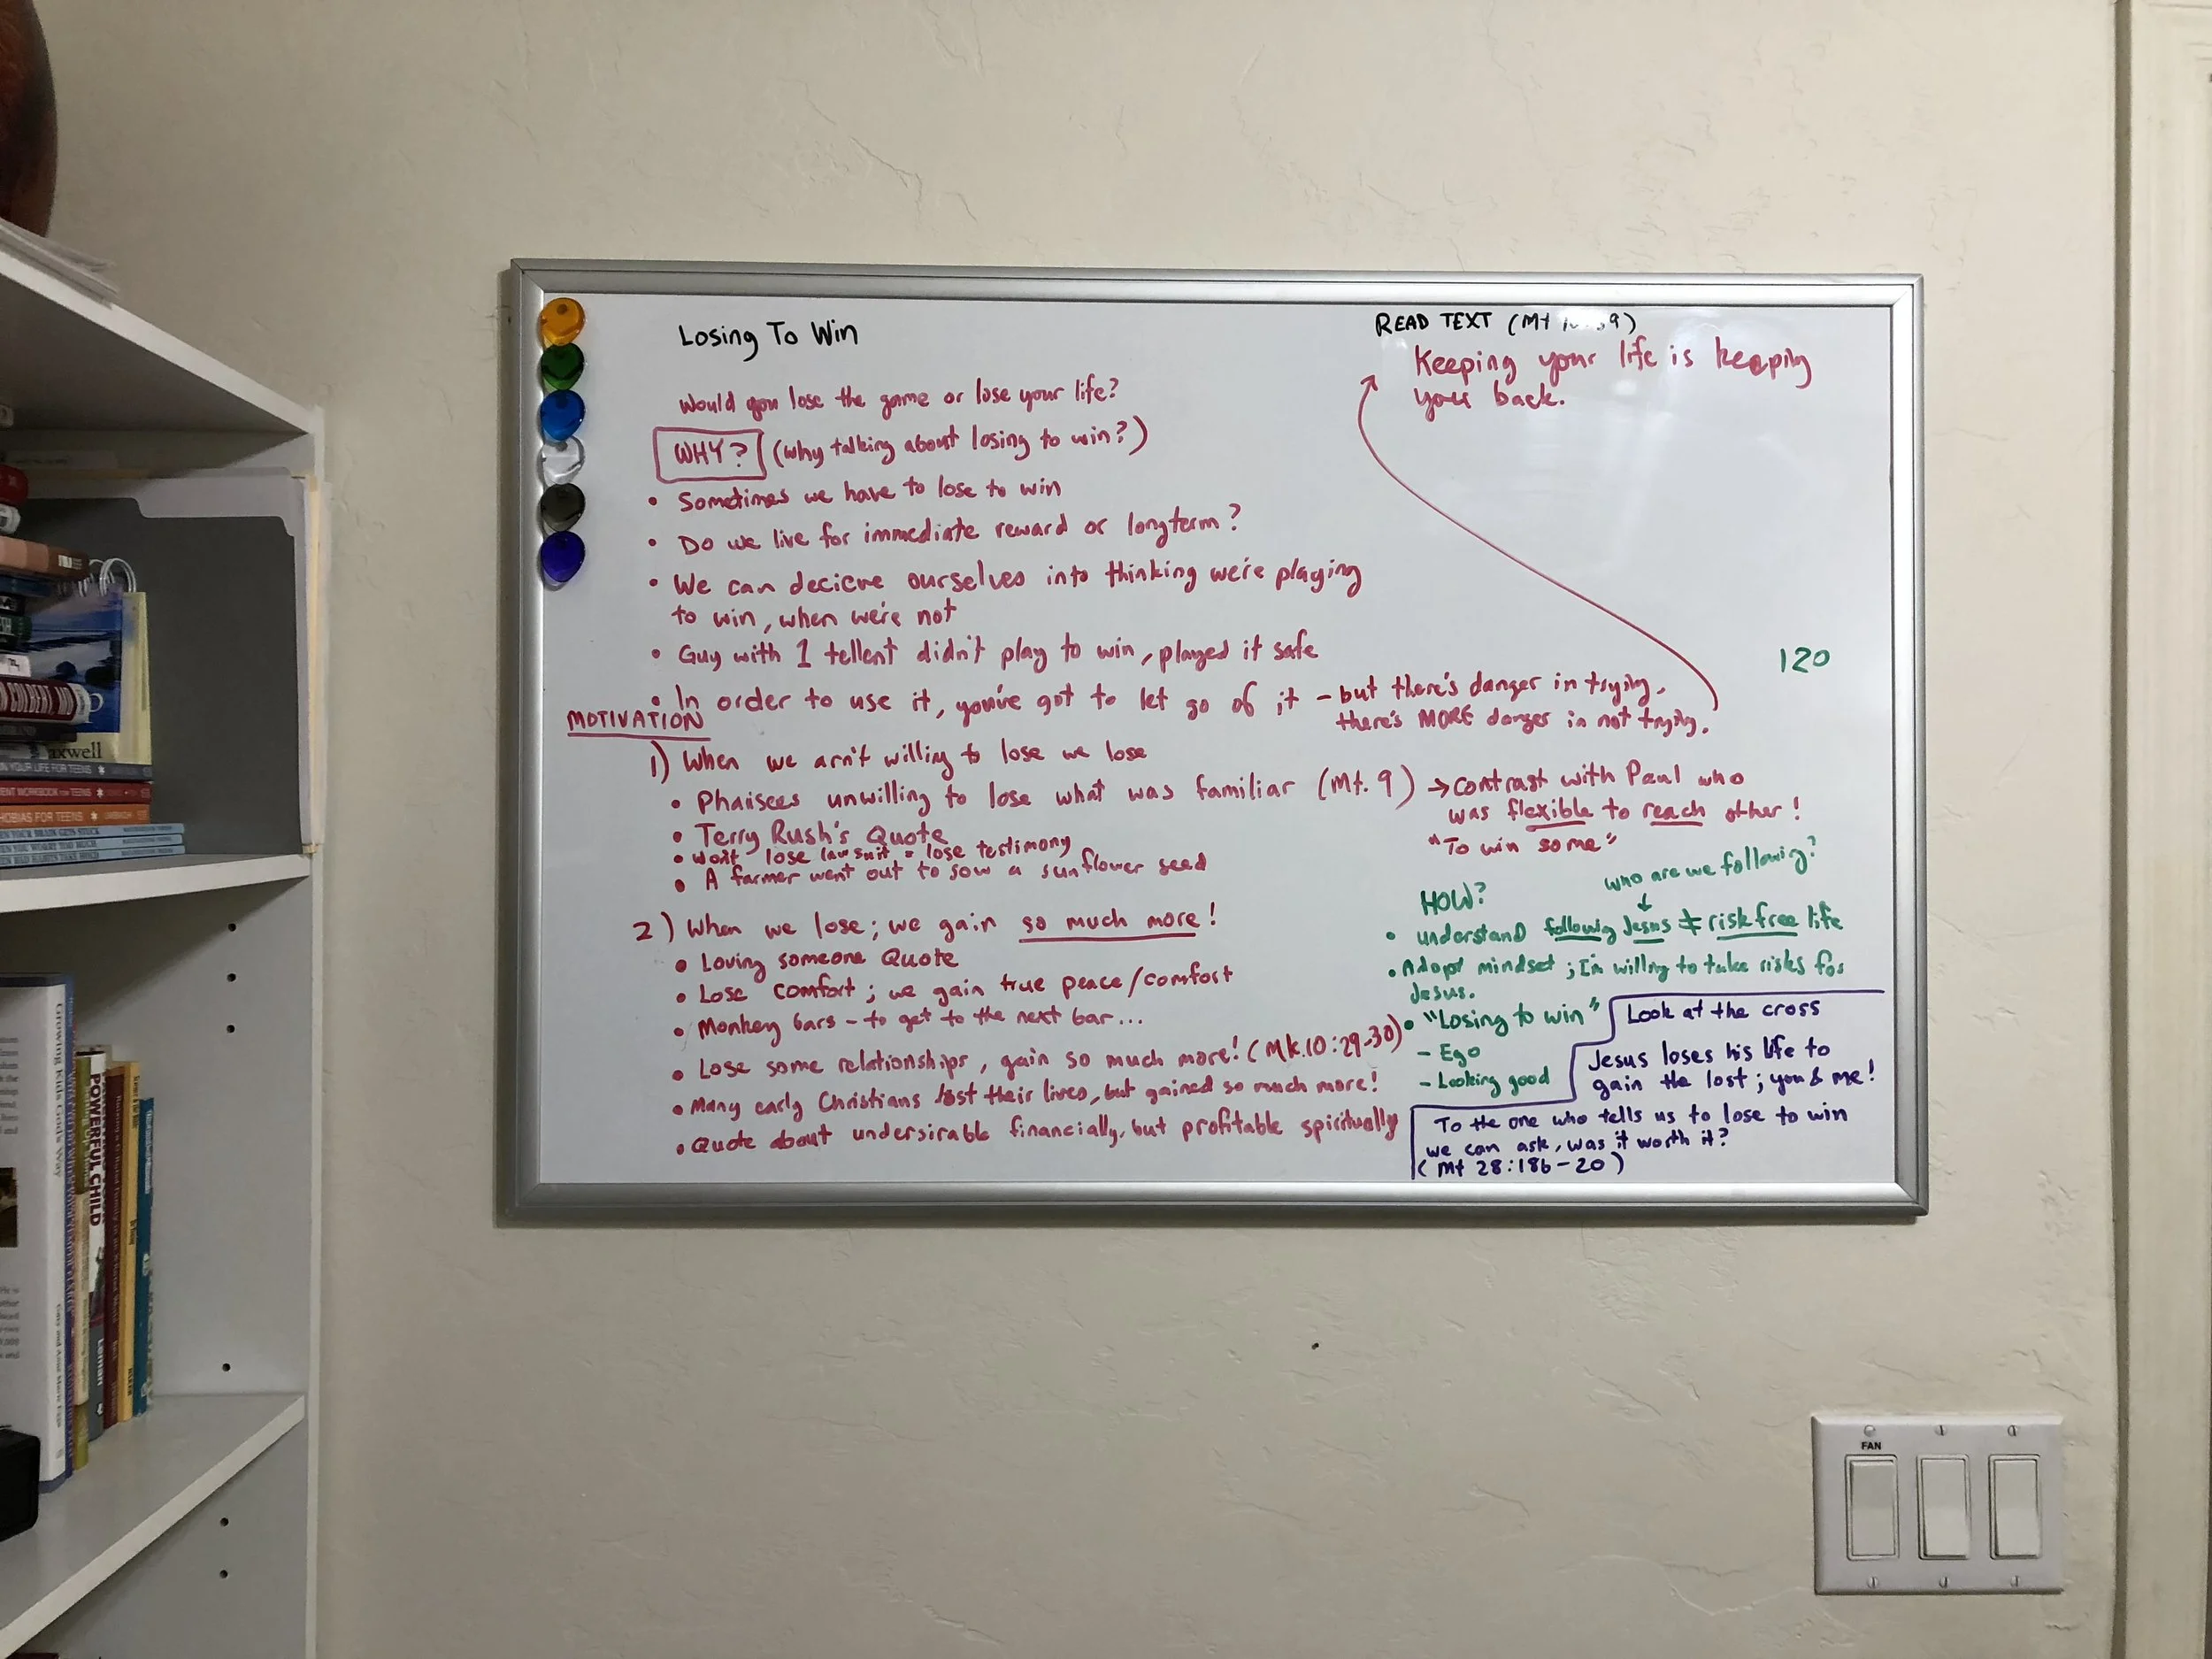 Losing To Win
Would you lose the game or lose your life?
WHY? (Why talking about losing to win?)
• Sometimes we have to lose to win
• Do we live for immediate reward or longterm?
• We can decieve ourselves into thinking we're playing
to win, when we're not
• Guy with 1 tellent didn't play to win, played it safe
• In order to use it, you've got to let go of it – but there's danger in trying.
there's MORE danger in not trying.
READ TEXT (Mt
Keeping your life is keeping
you back.
120
MOTIVATION
1) When we arn't willing to lose we lose
• Phaisees unwilling to lose what was familiar (Mt. 9) → contrast with Paul who
was flexible to reach other!
"To win some"
• Terry Rush's Quote
• won't lose lawsuit = lose testimony
• A farmer went out to sow a sunflower seed
2) When we lose; we gain so much more!
• Loving someone Quote
• Lose comfort; we gain true peace/comfort
• Monkey bars – to get to the next bar...
• Lose some relationships, gain so much more! (Mk.10:29-30)
• Many early Christians lost their lives, but gained so much more!
• Quote about undersirable financially, but profitable spiritually
HOW?
who are we following?
↓
• understand following Jesus ≠ risk free life
• Adopt mindset; I'm willing to take risks for
Jesus.
• "Losing to win"
– Ego
– Looking good
Look at the cross
Jesus loses his life to
gain the lost; you & me!
To the one who tells us to lose to win
we can ask, was it worth it?
(Mt 28:18b-20)
FAN
axwell
POWERFUL CHILD
Leman
Growing Kids God's Way